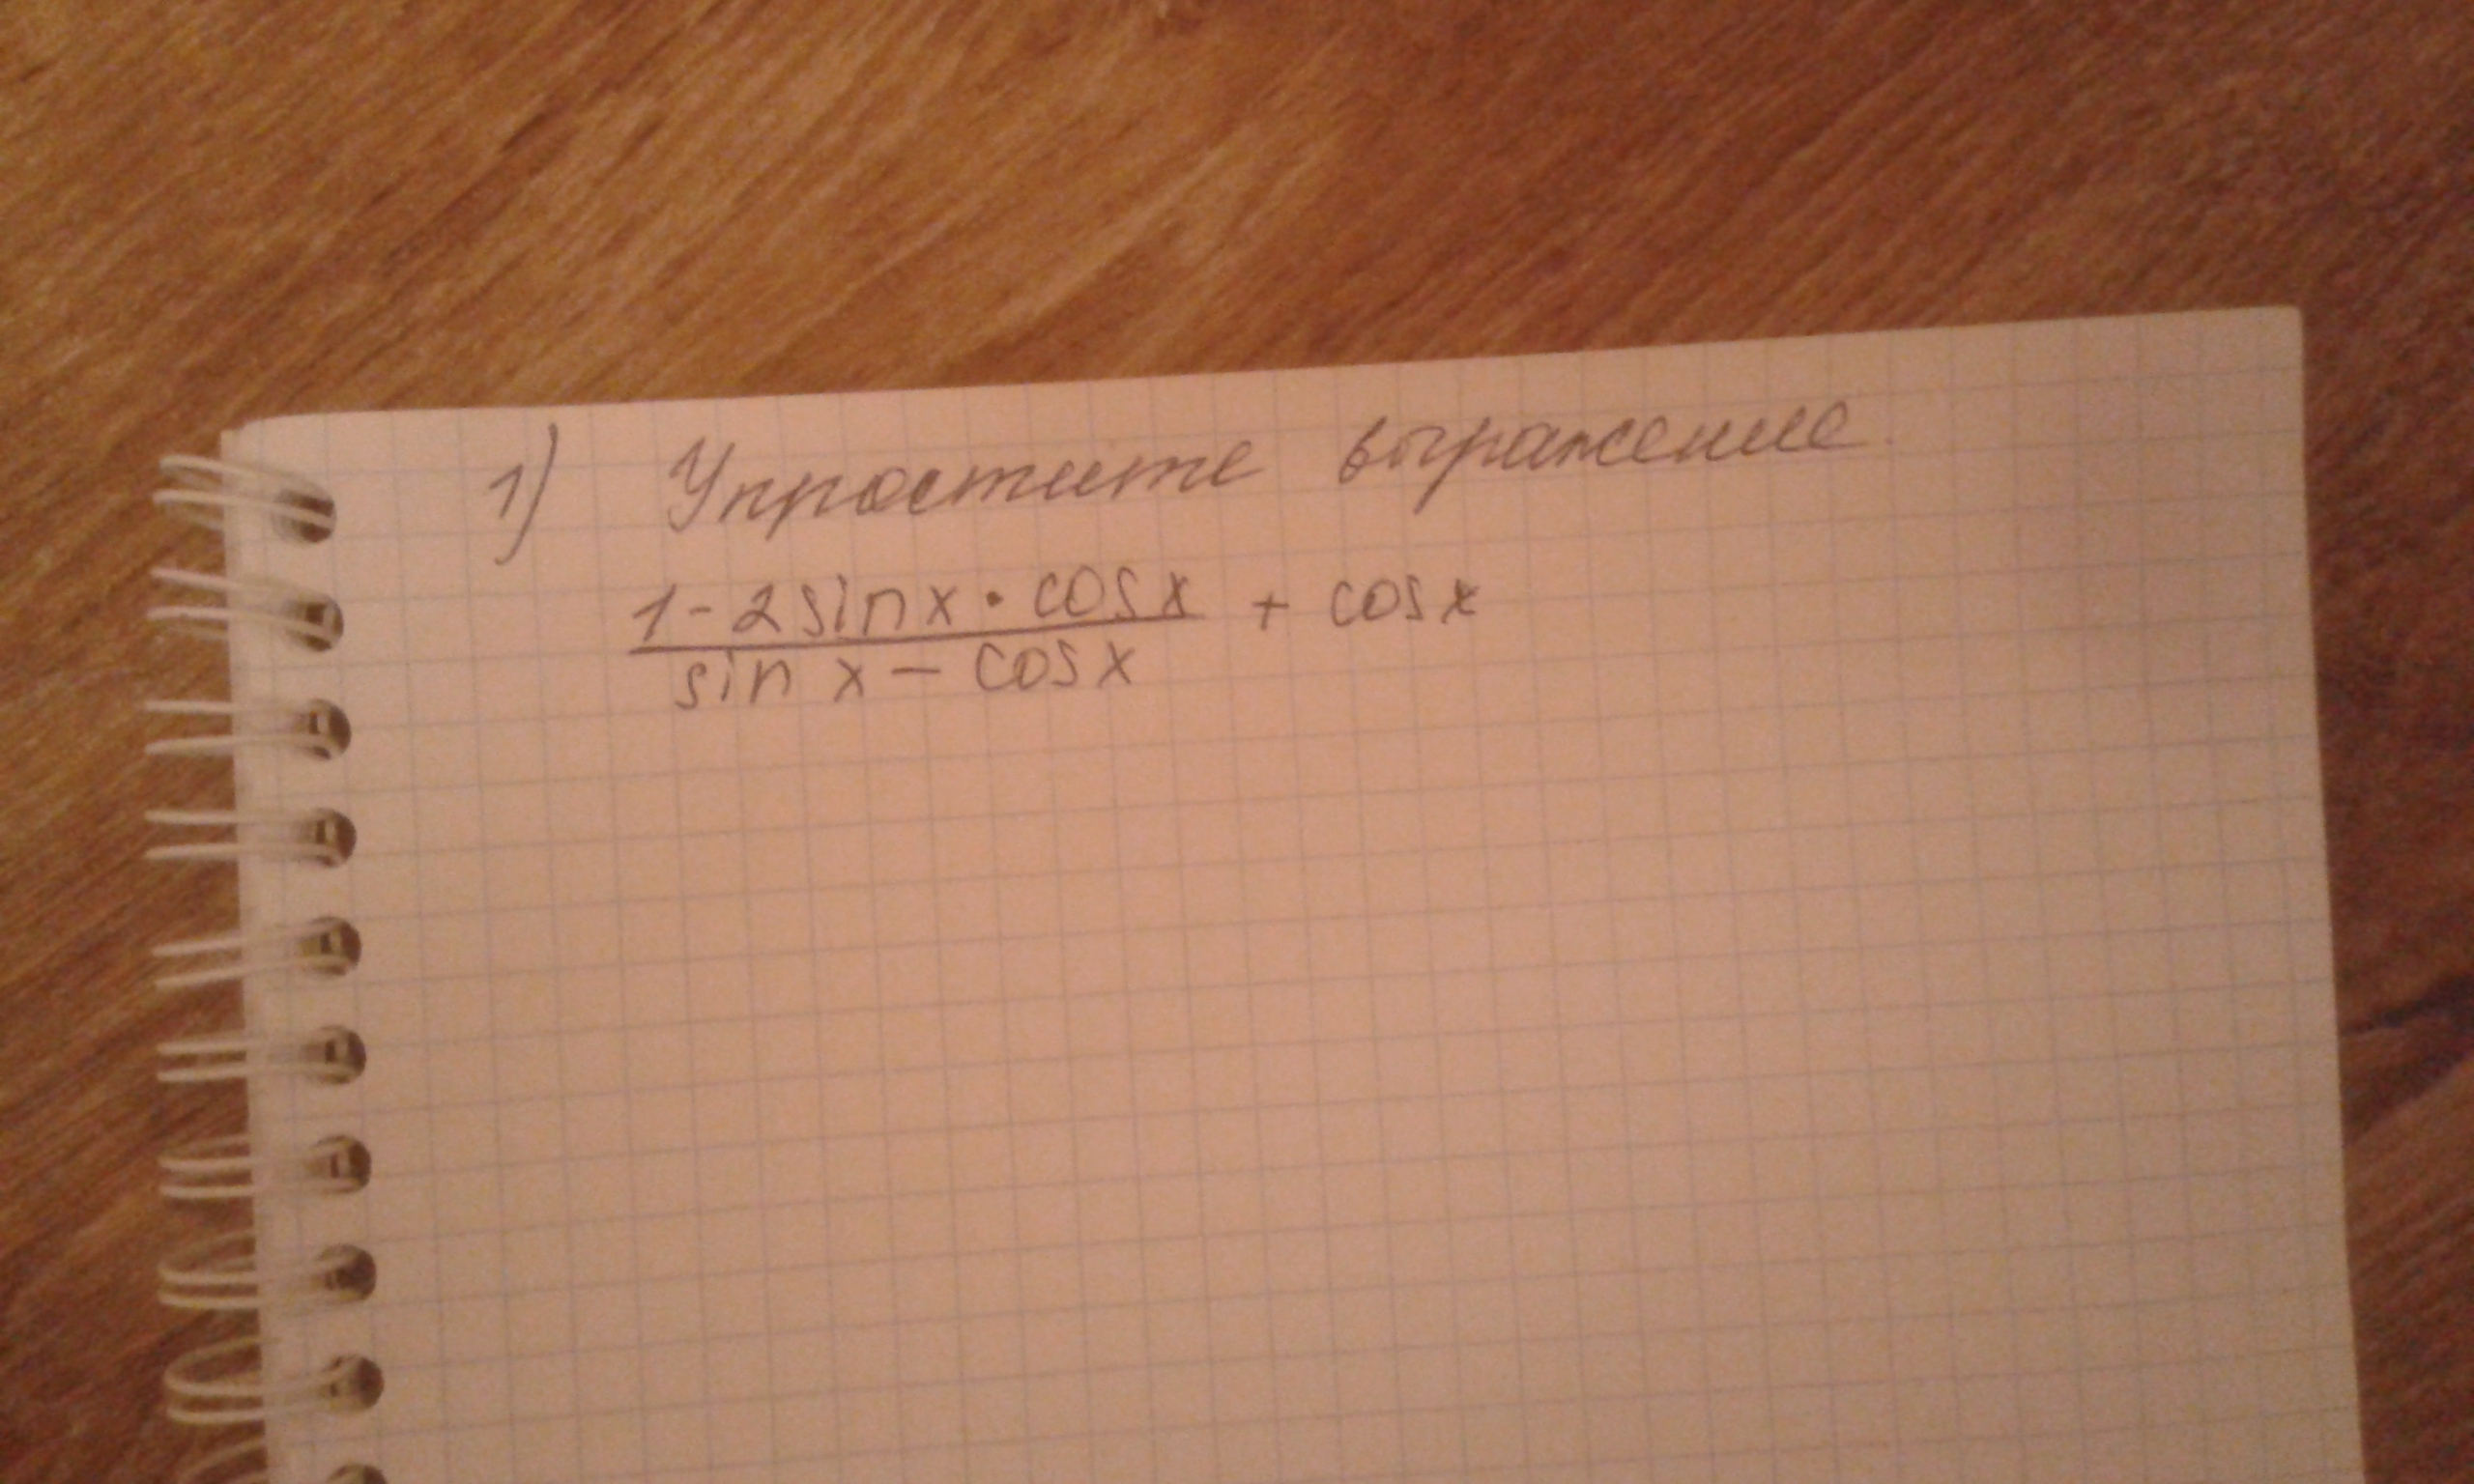 1) Упростите выражение.
1-2sinx·cosx + cosx
sin x - cosx